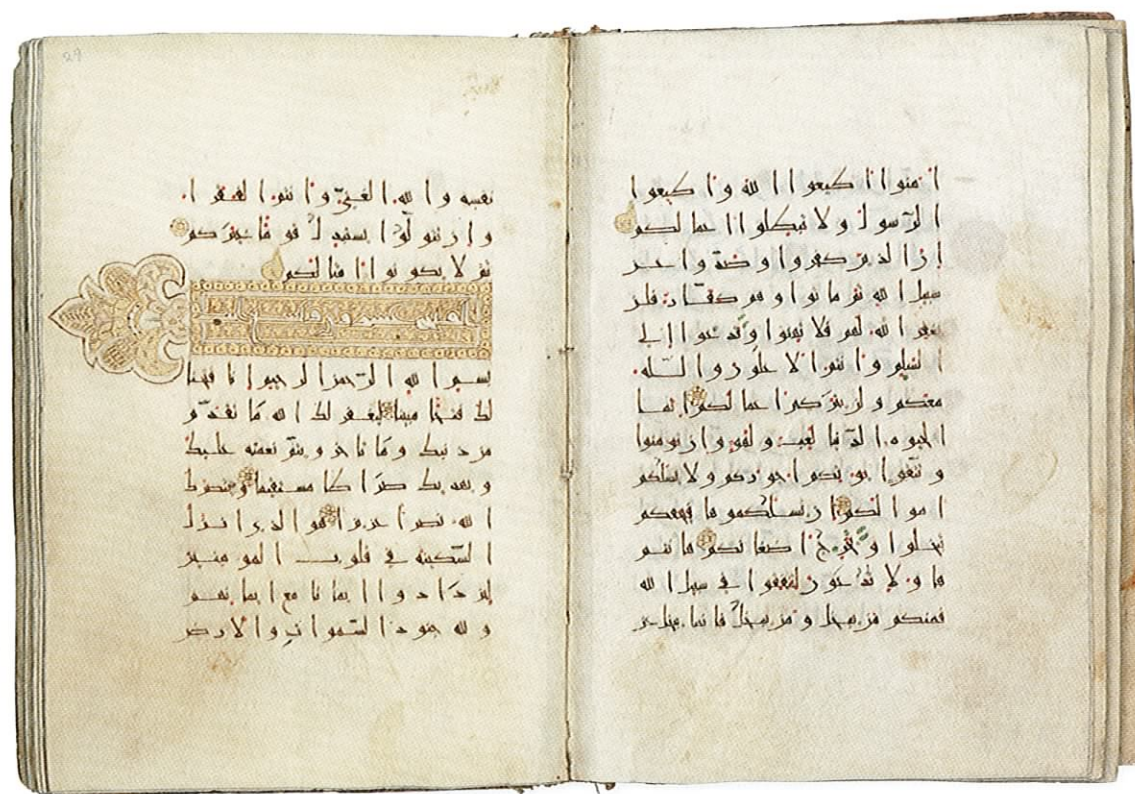 امنوا اطيعوا الله واطيعوا
الرسول ولا تبطلوا اعملكم
ان الذين كفروا وصدوا عن
سبيل الله ثم ماتوا وهم كفار فلن
يغفر الله لهم فلا تهنوا وتدعوا الى
السلم وانتم الاعلون والله
معكم ولن يتركم اعملكم انما
الحيوه الدنيا لعب ولهو وان تومنوا
وتتقوا يوتكم اجوركم ولا يسلكم
اموالكم ان يسلكموها فيحفكم
تبخلوا ويخرج اضغانكم هانتم
هاولا تدعون لتنفقوا في سبيل الله
فمنكم من يبخل ومن يبخل فانما يبخل عن
29
نفسه والله الغني وانتم الفقرا
وان تتولوا يستبدل قوما غيركم
ثم لا يكونوا امثالكم
بسم الله الرحمن الرحيم انا فتحنا
لك فتحا مبينا ليغفر لك الله ما تقدم
من ذنبك وما تاخر ويتم نعمته عليك
ويهديك صراطا مستقيما وينصرك
الله نصرا عزيزا هو الذي انزل
السكينه في قلوب المومنين
ليزدادوا ايمانا مع ايمانهم
ولله جنود السموات والارض